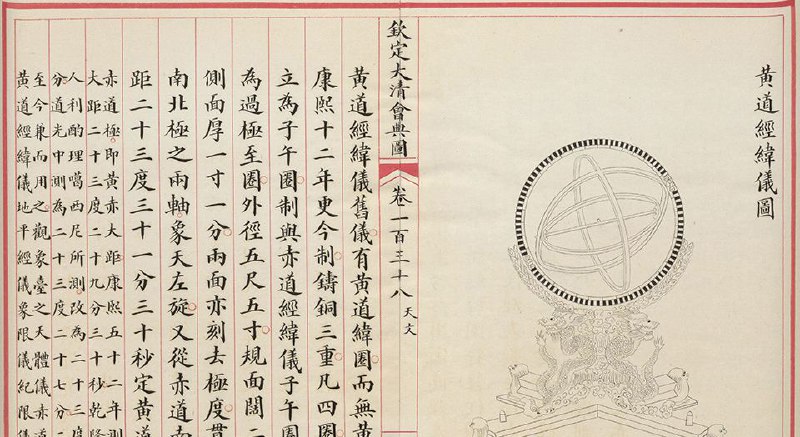 黃道經緯儀圖
欽定大清會典圖
卷一百三十八 天文
黃道經緯儀舊儀有黃道緯圈而無黃
康熙十二年更今制鑄銅三重凡四圈
立為子午圈制與赤道經緯儀子午圈
為過極至圈外徑五尺五寸規面闊二
側面厚一寸一分兩面亦刻去極度貫
南北極之兩軸象天左旋又從赤道南
距二十三度三十一分三十秒定黃道
赤道極即黃赤大距康熙五十二年測
大距二十三度二十九分三十秒乾隆
人利酌理噶西尼所測改為二十三度
分道光中測為二十三度二十七分二
至今兼而用之觀象臺之天體儀赤道
黃道經緯儀地平經儀象限儀紀限儀